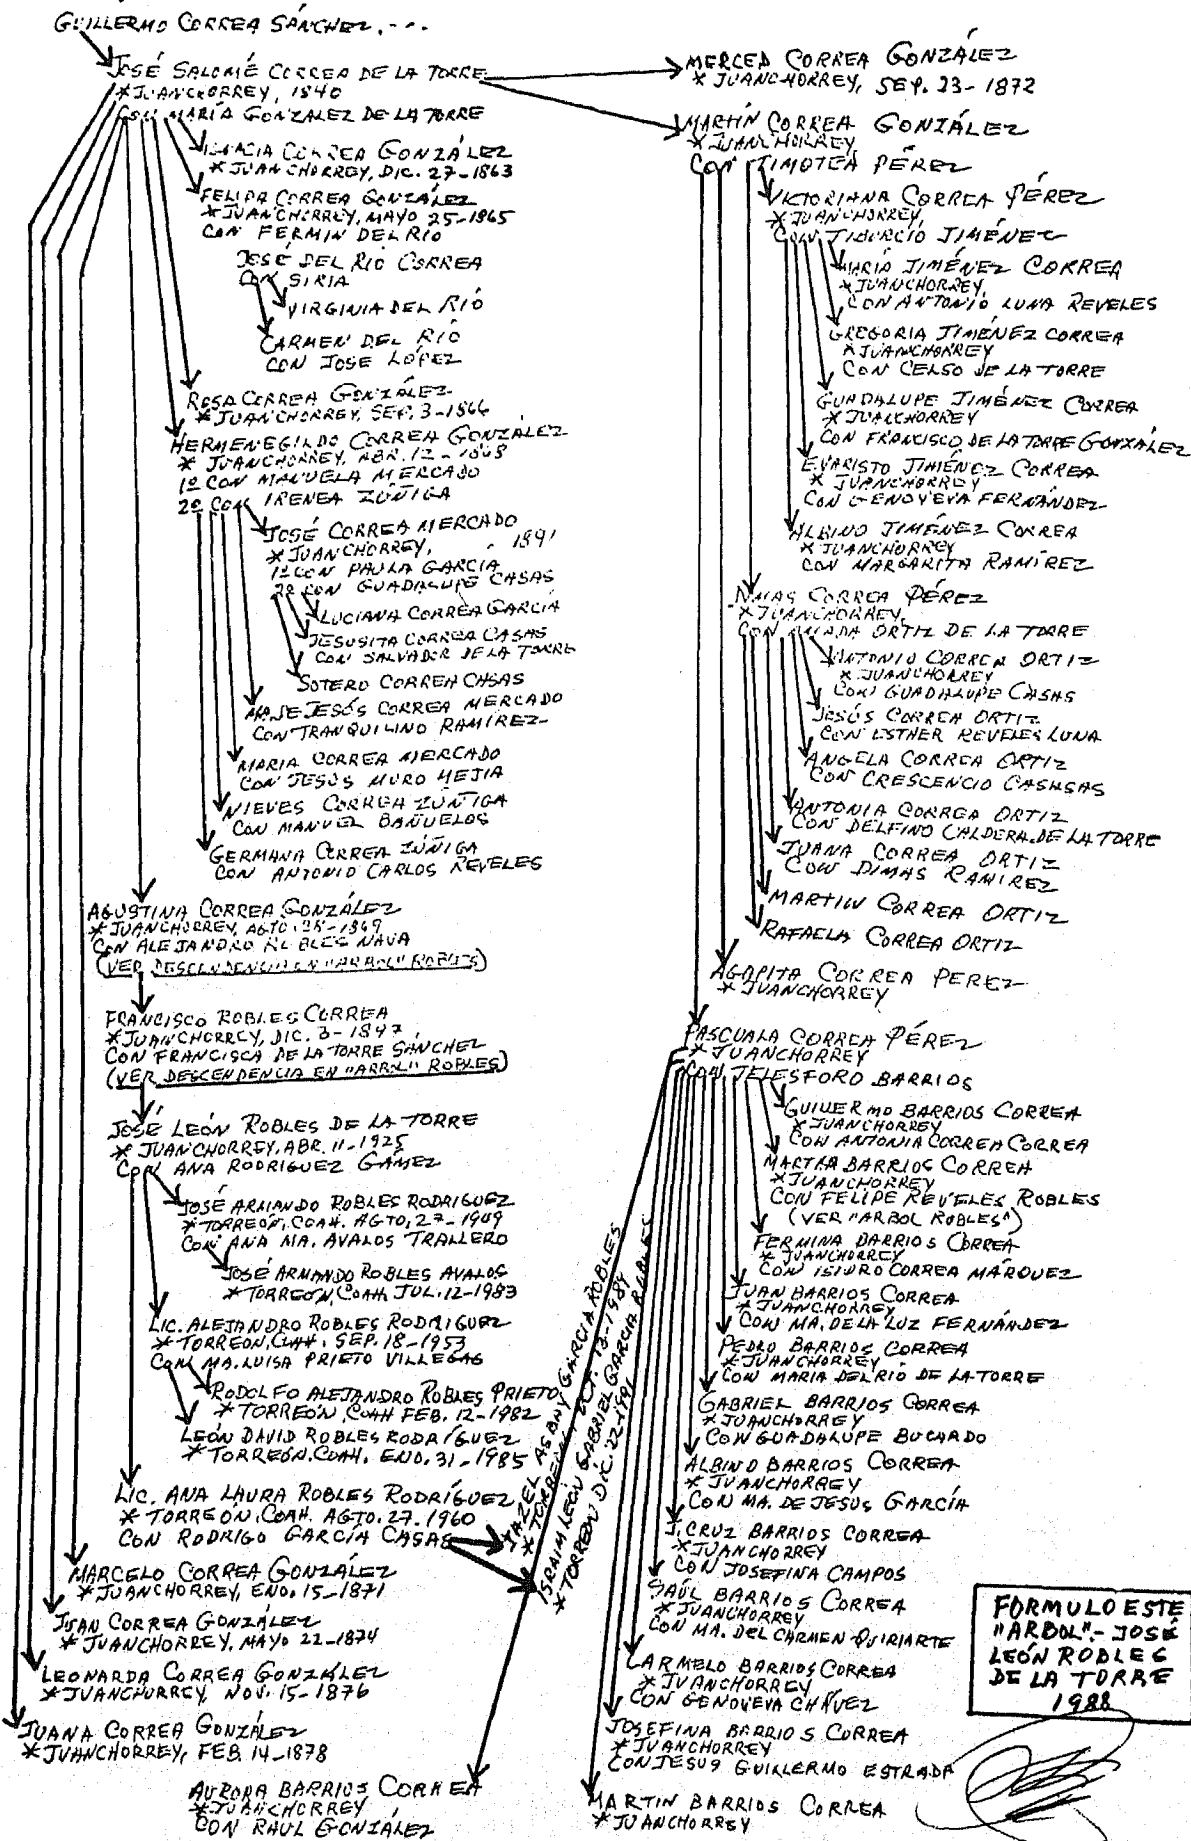 GUILLERMO CORREA SÁNCHEZ.---
JOSÉ SALOMÉ CORREA DE LA TORRE
*JUANCHORREY, 1840
CON MARÍA GONZALEZ DE LA TORRE
CORREA GONZÁLEZ
*JUANCHORREY, DIC. 27-1863
FELIPA CORREA GONZÁLEZ
*JUANCHORREY, MAYO 25-1865
CON FERMIN DEL RIO
JOSÉ DEL RIO CORREA
CON SIRIA
VIRGINIA DEL RIÓ
CARMEN DEL RIÓ
CON JOSE LOPEZ
ROSA CORREA GONZÁLEZ
*JUANCHORREY, SEP. 3-1866
HERMENEGILDO CORREA GONZÁLEZ
* JUANCHORREY, ABR. 12-1868
1º CON MANUELA MERCADO
2º CON IRENEA ZÚÑIGA
JOSÉ CORREA MERCADO
*JUANCHORREY, 1891
1º CON PAULA GARCÍA
2º CON GUADALUPE CASAS
LUCIANA CORREA GARCÍA
JESUSITA CORREA CASAS
CON SALVADOR DE LA TORRE
SOTERO CORREA CASAS
MA. DE JESÚS CORREA MERCADO
CON TRANQUILINO RAMIREZ
MARIA CORREA MERCADO
CON JESÚS MURO MEJIA
NIEVES CORREA ZÚÑIGA
CON MANUEL BAÑUELOS
GERMANA CORREA ZÚÑIGA
CON ANTONIO CARLOS REVELES
AGUSTINA CORREA GONZÁLEZ
*JUANCHORREY, AGTO. 28-1869
CON ALEJANDRO ROBLES NAVA
(VER DESCENDENCIA EN "ARBOL" ROBLES)
FRANCISCO ROBLES CORREA
*JUANCHORREY, DIC. 3-1897
CON FRANCISCA DE LA TORRE SÁNCHEZ
(VER DESCENDENCIA EN "ARBOL" ROBLES)
JOSÉ LEÓN ROBLES DE LA TORRE
* JUANCHORREY, ABR. 11-1925
CON ANA RODRIGUEZ GÁMEZ
JOSÉ ARMANDO ROBLES RODRIGUEZ
*TORREÓN, COAH. AGTO, 27-1949
CON ANA MA. AVALOS TRALLERO
JOSÉ ARMANDO ROBLES AVALOS
*TORREÓN, COAH. JUL. 12-1983
LIC. ALEJANDRO ROBLES RODRIGUEZ
*TORREÓN, COAH. SEP. 18-1953
CON MA. LUISA PRIETO VILLEGAS
RODOLFO ALEJANDRO ROBLES PRIETO
*TORREÓN, COAH FEB. 12-1982
LEÓN DAVID ROBLES RODRÍGUEZ
*TORREÓN. COAH. ENO. 31-1985
LIC. ANA LAURA ROBLES RODRÍGUEZ
* TORREÓN, COAH. AGTO. 27. 1960
CON RODRIGO GARCÍA CASAS
ASBAY GARCIA ROBLES
*TORREÓN, OCT. 13-1989
ISRAIM LEÓN GABRIEL GARCÍA ROBLES
*TORREÓN DIC. 22-1991
MARCELO CORREA GONZÁLEZ
*JUANCHORREY, ENO. 15-1871
JUAN CORREA GONZÁLEZ
* JUANCHORREY, MAYO 22-1874
LEONARDA CORREA GONZÁLEZ
*JUANCHORREY, NOV. 15-1876
JUANA CORREA GONZÁLEZ
*JUANCHORREY, FEB. 14-1878
AURORA BARRIOS CORREA
*JUANCHORREY
CON RAUL GONZÁLEZ
MERCED CORREA GONZÁLEZ
* JUANCHORREY, SEP. 23-1872
MARTÍN CORREA GONZÁLEZ
*JUANCHORREY
CON TIMOTEA PÉREZ
VICTORIANA CORREA PÉREZ
*JUANCHORREY
CON TIBURCIO JIMÉNEZ
MARÍA JIMÉNEZ CORREA
*JUANCHORREY
CON ANTONIO LUNA REVELES
GREGORIA JIMÉNEZ CORREA
*JUANCHORREY
CON CELSO DE LA TORRE
GUADALUPE JIMÉNEZ CORREA
*JUANCHORREY
CON FRANCISCO DE LA TORRE GONZÁLEZ
EVARISTO JIMÉNEZ CORREA
*JUANCHORREY
CON GENOVEVA FERNÁNDEZ
ALBINO JIMÉNEZ CORREA
*JUANCHORREY
CON MARGARITA RAMÍREZ
CORREA PÉREZ
*JUANCHORREY.
CON ORTIZ DE LA TORRE
ANTONIO CORREA ORTIZ
*JUANCHORREY
CON GUADALUPE CASAS
JESÚS CORREA ORTIZ
CON ESTHER REVELES LUNA
ANGELA CORREA ORTIZ
CON CRESCENCIO CASASAS
ANTONIA CORREA ORTIZ
CON DELFINO CALDERA DE LA TORRE
JUANA CORREA ORTIZ
CON DIMAS RAMIREZ
MARTIN CORREA ORTIZ
RAFAELA CORREA ORTIZ
AGAPITA CORREA PEREZ
*JUANCHORREY
PASCUALA CORREA PÉREZ
*JUANCHORREY
CON TELESFORO BARRIOS
GUILLERMO BARRIOS CORREA
*JUANCHORREY
CON ANTONIA CORREA CORREA
MARTHA BARRIOS CORREA
*JUANCHORREY
CON FELIPE REVELES ROBLES
(VER "ARBOL ROBLES")
FERMINA BARRIOS CORREA
*JUANCHORREY
CON ISIDRO CORREA MÁRQUEZ
JUAN BARRIOS CORREA
*JUANCHORREY
CON MA. DE LA LUZ FERNÁNDEZ
PEDRO BARRIOS CORREA
*JUANCHORREY
CON MARIA DEL RIO DE LA TORRE
GABRIEL BARRIOS CORREA
*JUANCHORREY
CON GUADALUPE BUCARDO
ALBINO BARRIOS CORREA
*JUANCHORREY
CON MA. DE JESUS GARCÍA
J. CRUZ BARRIOS CORREA
*JUANCHORREY
CON JOSEFINA CAMPOS
SAÚL BARRIOS CORREA
*JUANCHORREY
CON MA. DEL CARMEN QUIRIARTE
CARMELO BARRIOS CORREA
*JUANCHORREY
CON GENOVEVA CHÁVEZ
JOSEFINA BARRIOS CORREA
*JUANCHORREY
CON JESUS GUILLERMO ESTRADA
MARTIN BARRIOS CORREA
*JUANCHORREY
FORMULO ESTE
"ARBOL"- JOSÉ
LEÓN ROBLES
DE LA TORRE
1988